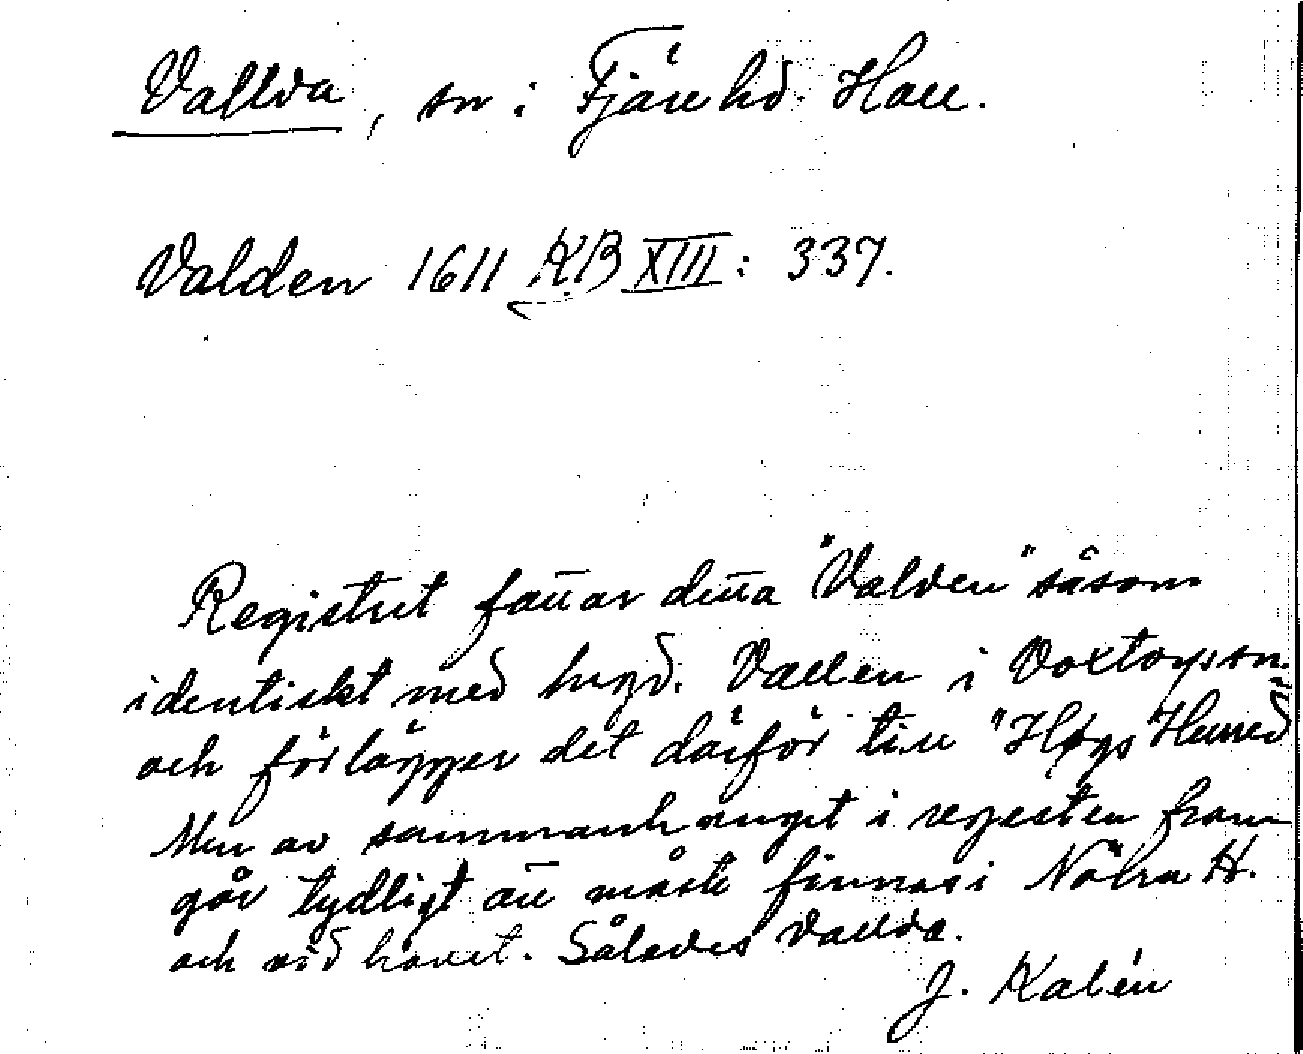 Vallda, sn i Fjäre hd. Hall.
Valden 1611 KB XIII: 337.
Registret fattar detta "Valden" såsom
identiskt med bygd. Vallen i Voxtorps sn.
och förlägger det därför till "Høgs Hered
Men av sammanhanget i regesten fram
går tydligt att måste finnas i Nörra H.
och vid havet. Således Vallda.
J. Kalén